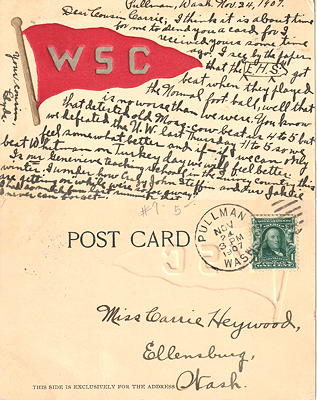 Pullman, Wash. Nov. 24, 1907.
Dear Cousin Carrie, I think it is about time
for me to send you a card for I
received yours some time
I see by the paper
that the E.H.S. got
beat, when they played
the Normal foot ball, well that
is no worse than we were. You know
that detested old Moscow beat us 4 to 5 but
we defeated the U.W. last Thursday 11 to 5 so we
feel somewhat better and if we can only
beat Whitman on Turkey day we will feel better
Is our Genevieve teaching school in the county this
winter. I wonder how Carl, John
are getting on while we
never can forget.
Your cousin
WSC
#7-5
POST CARD
PULLMAN
NOV
24
3 PM
1907
WASH.
Miss Carrie Heywood,
Ellensburg,
Wash.
THIS SIDE IS EXCLUSIVELY FOR THE ADDRESS